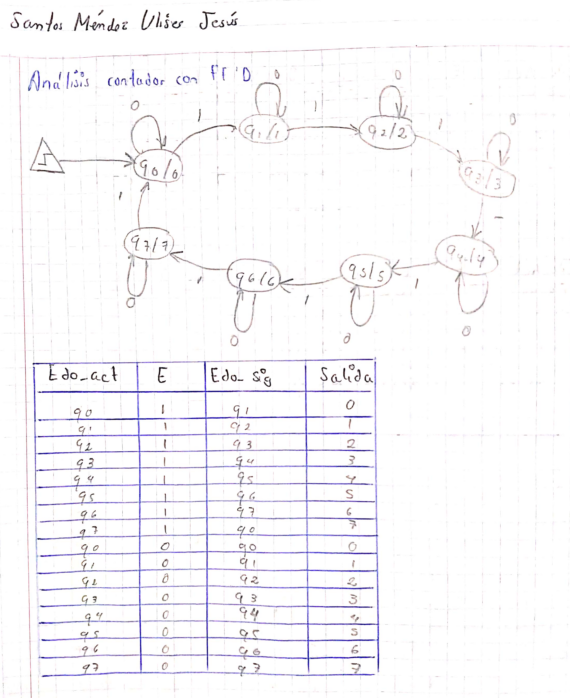 Santos Méndez Uliser Jesús
Análisis contador con FF'D
0 0 0 0
1 1 1
q0/0 q1/1 q2/2 q3/3
1
q7/7 q6/6 q5/5 q4/4
1 1 1
0 0 0 0
Edo_act E Edo_sig Salida
q0 1 q1 0
q1 1 q2 1
q2 1 q3 2
q3 1 q4 3
q4 1 q5 4
q5 1 q6 5
q6 1 q7 6
q7 1 q0 7
q0 0 q0 0
q1 0 q1 1
q2 0 q2 2
q3 0 q3 3
q4 0 q4 4
q5 0 q5 5
q6 0 q6 6
q7 0 q7 7